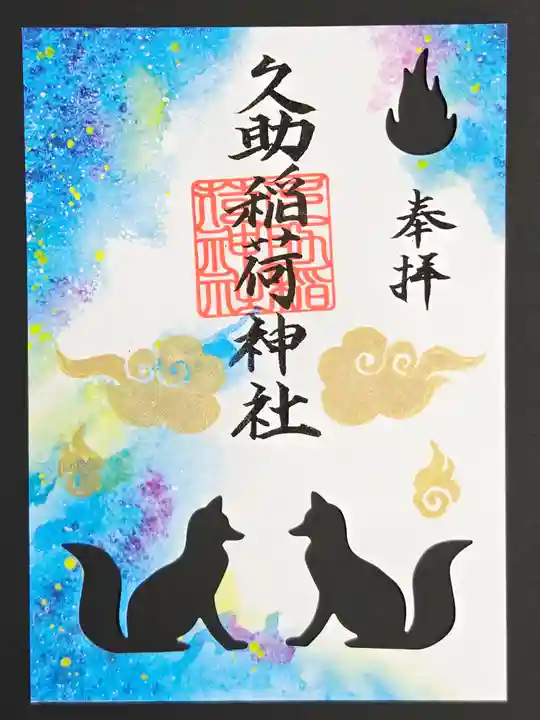 奉拝
久助稲荷神社